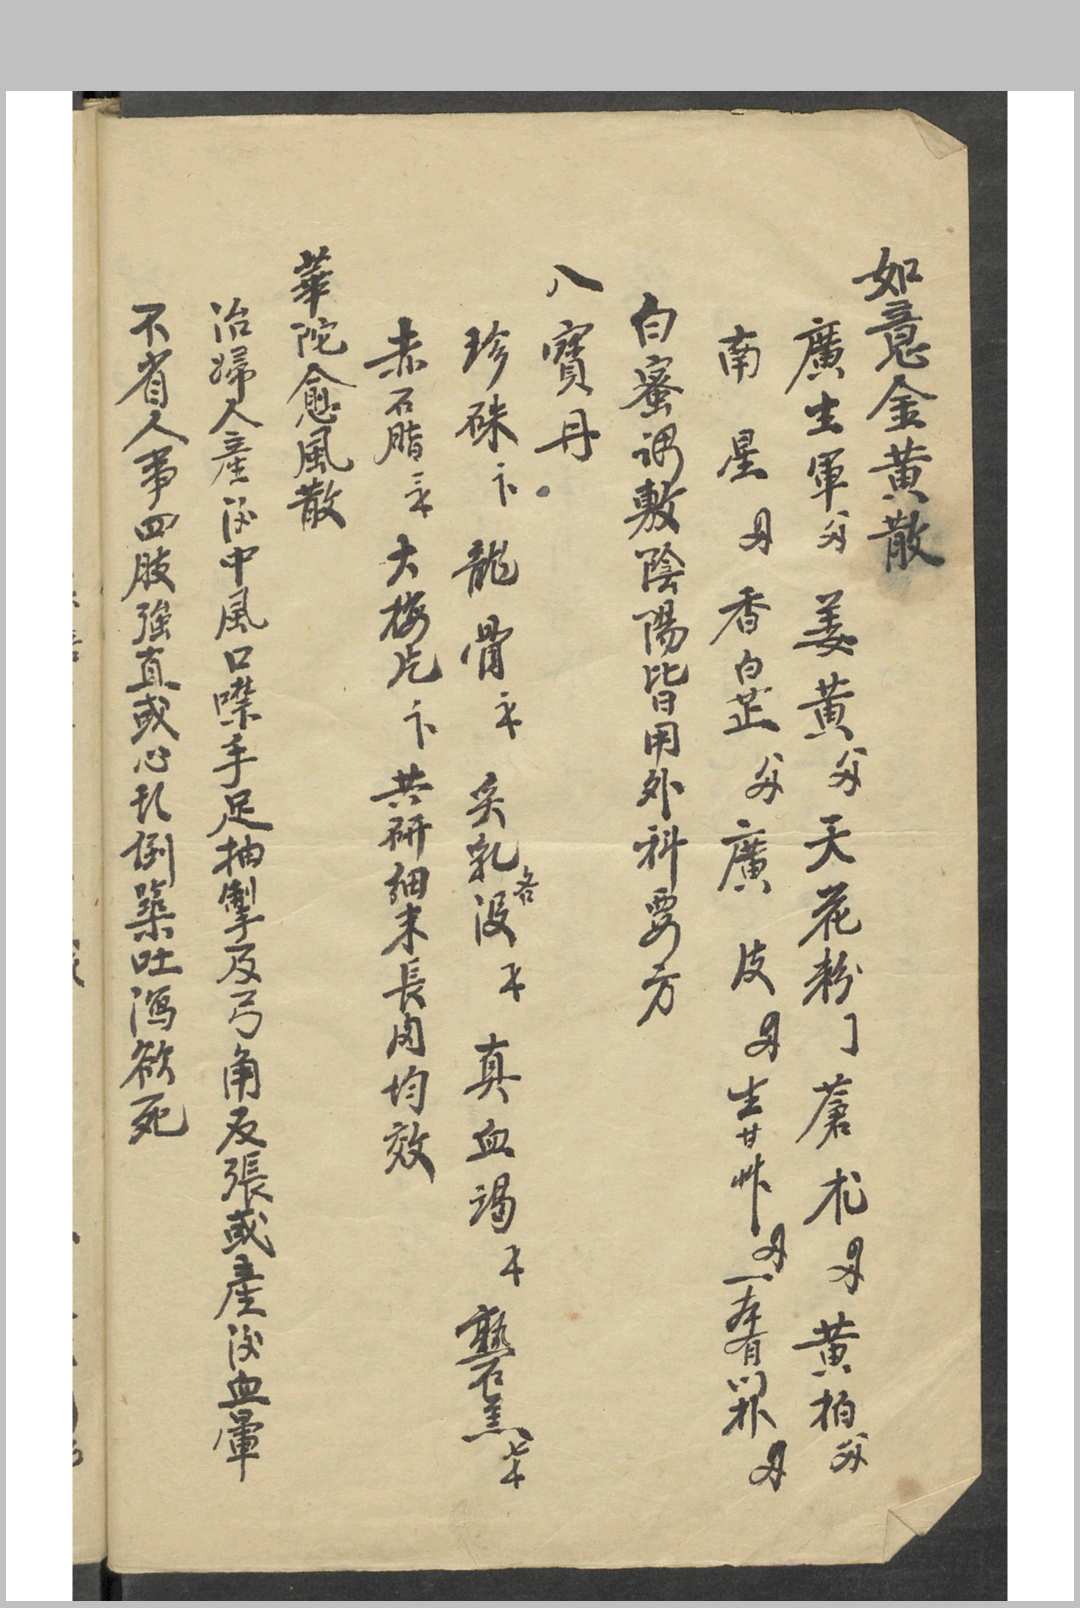 如意金黃散
廣生軍 姜黃 天花粉 蒼朮 黃柏
南星 香白芷 廣皮 生甘艸 一本有川朴
白蜜調敷陰陽皆用外科要方
八寶丹
珍硃 龍骨 炙乳没各 真血竭 熟石羔
赤石脂 大梅片 共研細末長肉均效
華陀愈風散
治婦人産後中風口噤手足抽掣及弓角反張或產後血暈
不省人事四肢強直或心 倒築吐瀉欲死